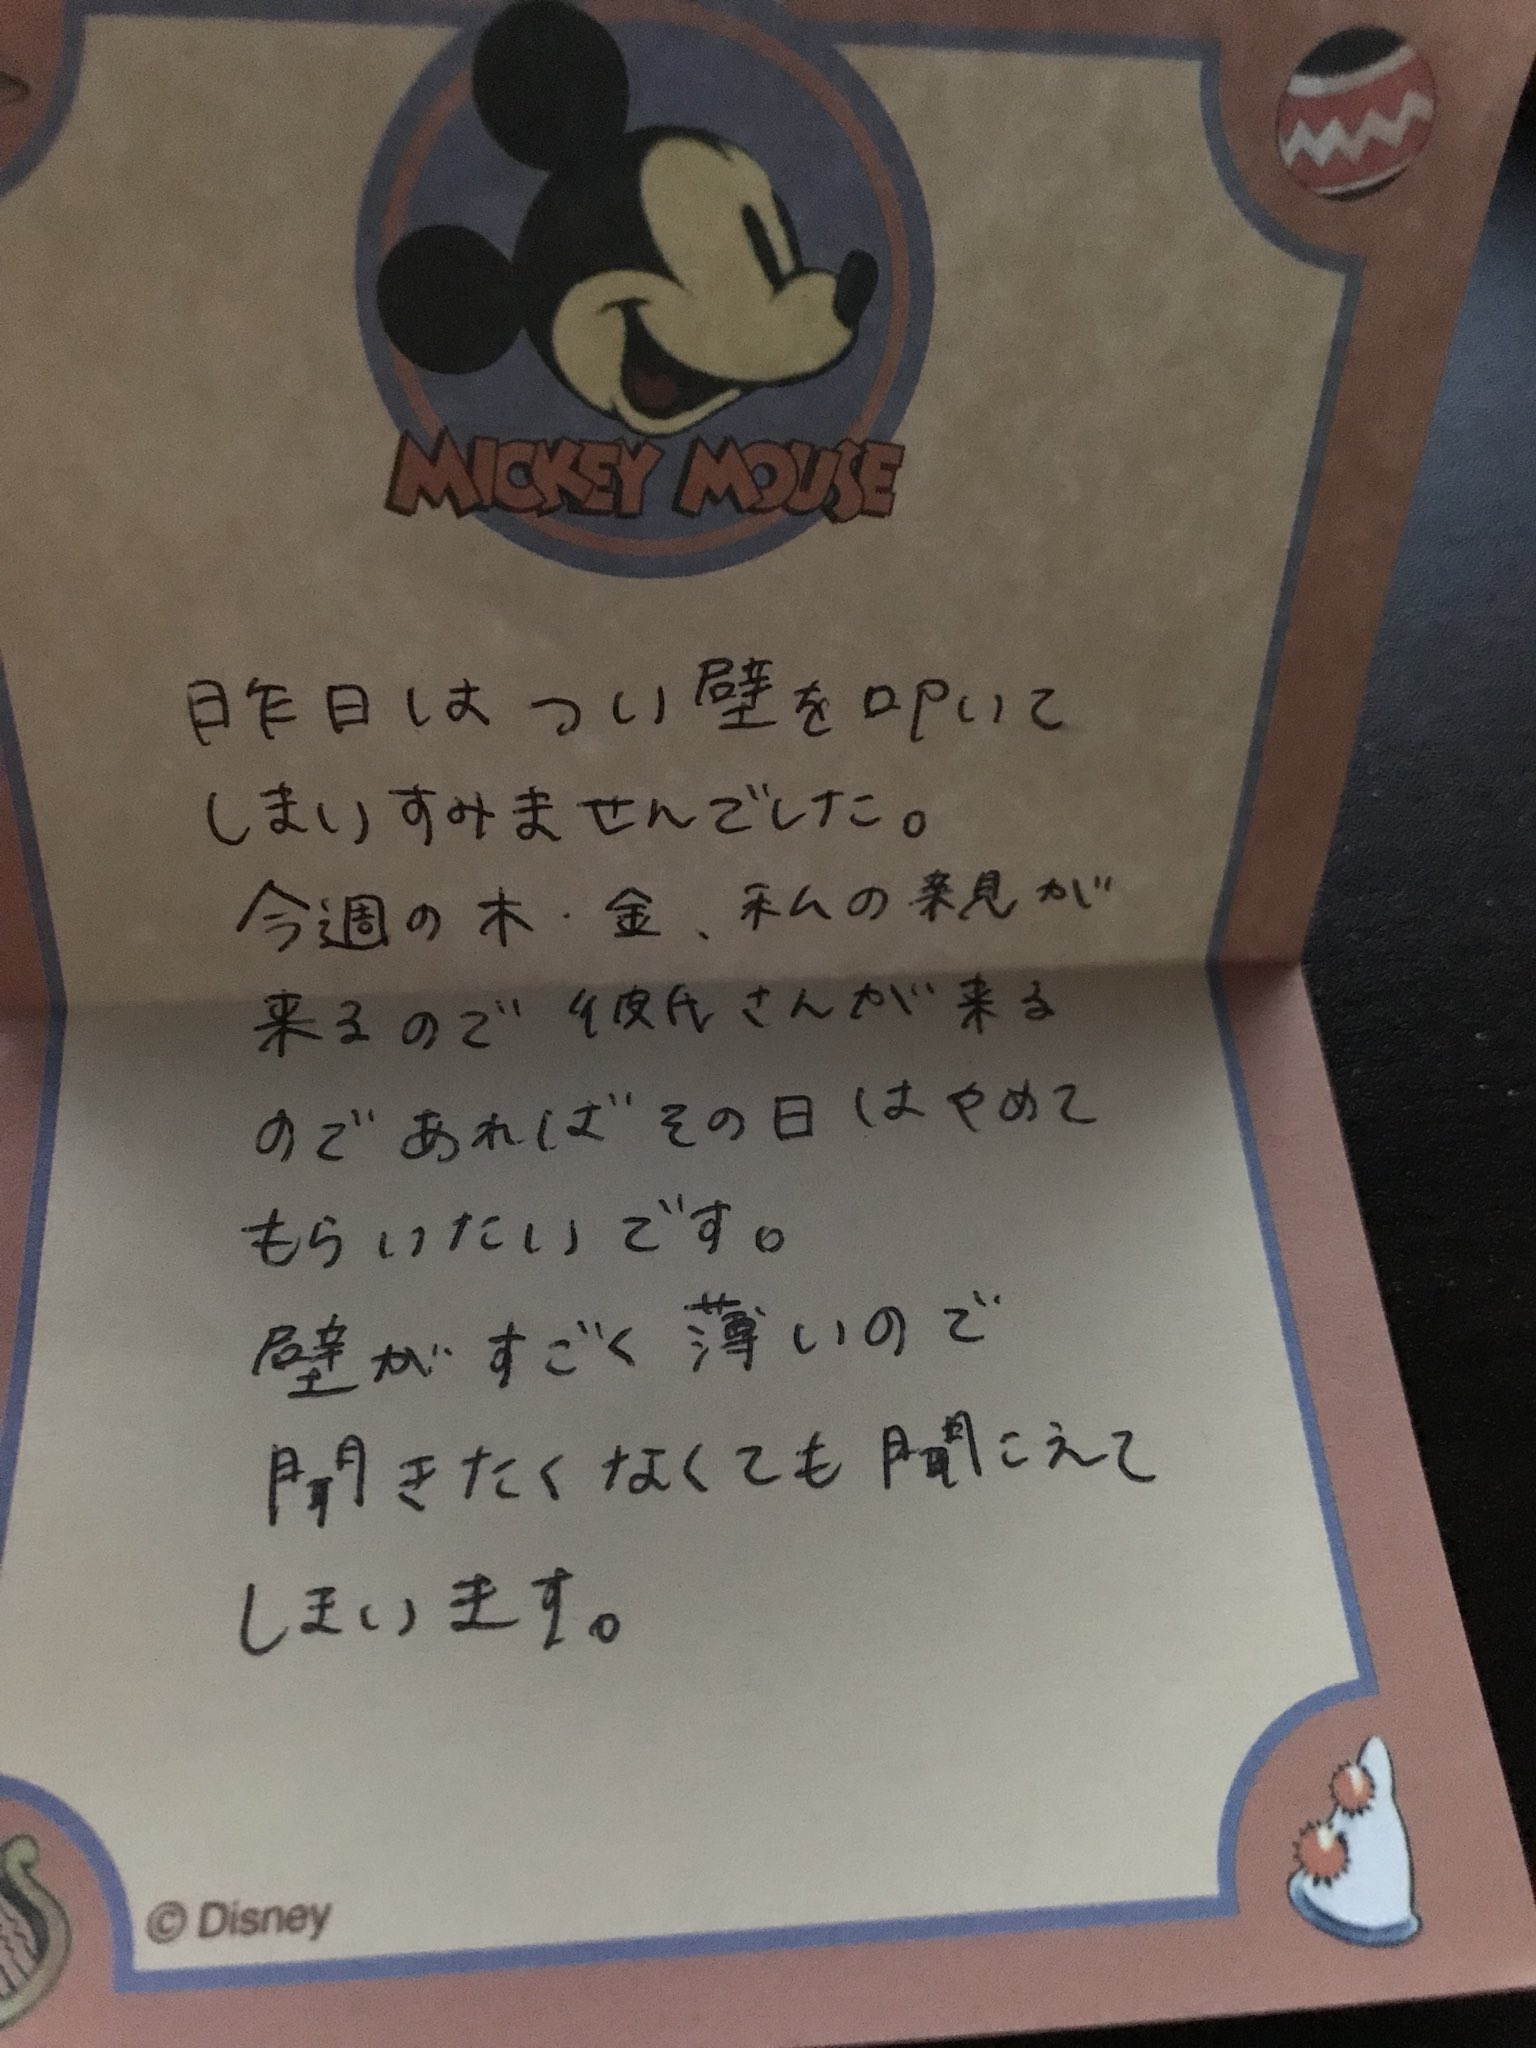 MICKEY MOUSE
昨日はつい壁を叩いて
しまいすみませんでした。
今週の木・金、私の親が
来るので彼氏さんが来る
のであればその日はやめて
もらいたいです。
壁がすごく薄いので
聞きたくなくても聞こえて
しまいます。
© Disney